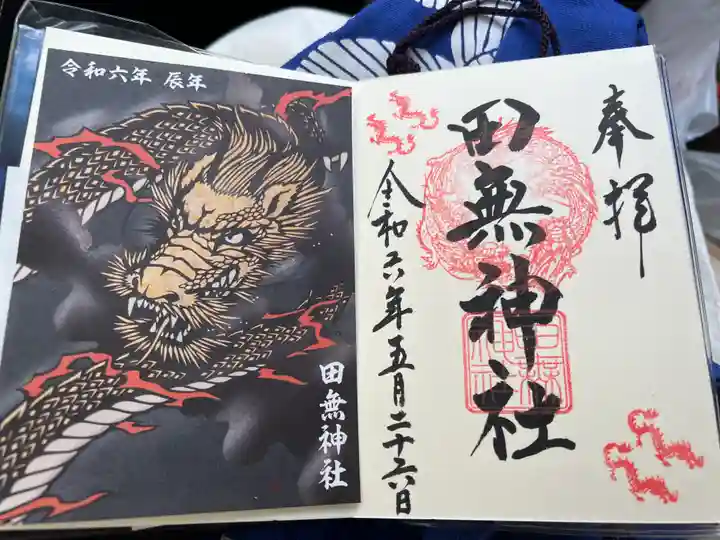 令和六年 辰年
田無神社
奉拝
田無神社
令和六年五月二十六日